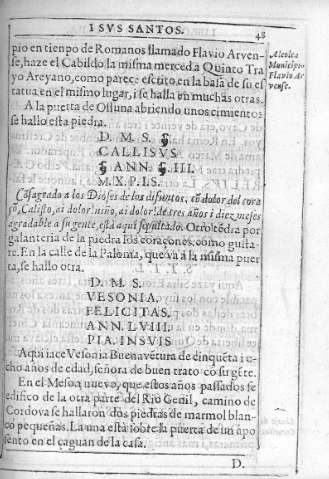 I SVS SANTOS. 48
pio en tiempo de Romanos llamado Flavio Arven-
se, haze el Cabildo la misma merced a Quinto Tra
yo Areyano, como parece escrito en la basa de su es
tatua en el mismo lugar, i se halla en muchas otras.
A la puerta de Ossuna abriendo unos cimientos
se hallo esta piedra.
D. M. S.
CALLISVS
ANN III.
M. X. P. I. S.
Cõsagrado a los Dioses de los difuntos, cõ dolor del cora
sõ, Calisto, ai dolor! niño, ai dolor! de tres años i diez meses
agradable a su gente, està aqui sepultado. Otro tẽdra por
galanteria de la piedra los coraçones: como gusta-
re. En la calle de la Paloma, que và a la misma puer
ta, se hallo otra.
D. M. S.
VESONIA.
FELICITAS.
ANN. LVIII.
PIA. IN SVIS
Aqui iace Vesonia Buenavẽtura de cinquẽta i o-
cho años de edad, señora de buen trato cõ su gẽte.
En el Meson nuevo, que estos años passados se
edifico de la otra parte del Rio Genil, camino de
Cordova se hallaron dos piedras de marmol blan-
co pequeñas. La una està sobre la puerta de un apo
sento en el çaguan de la casa.
D.
Alcolea
Municipio
Flavio Ar
vense.